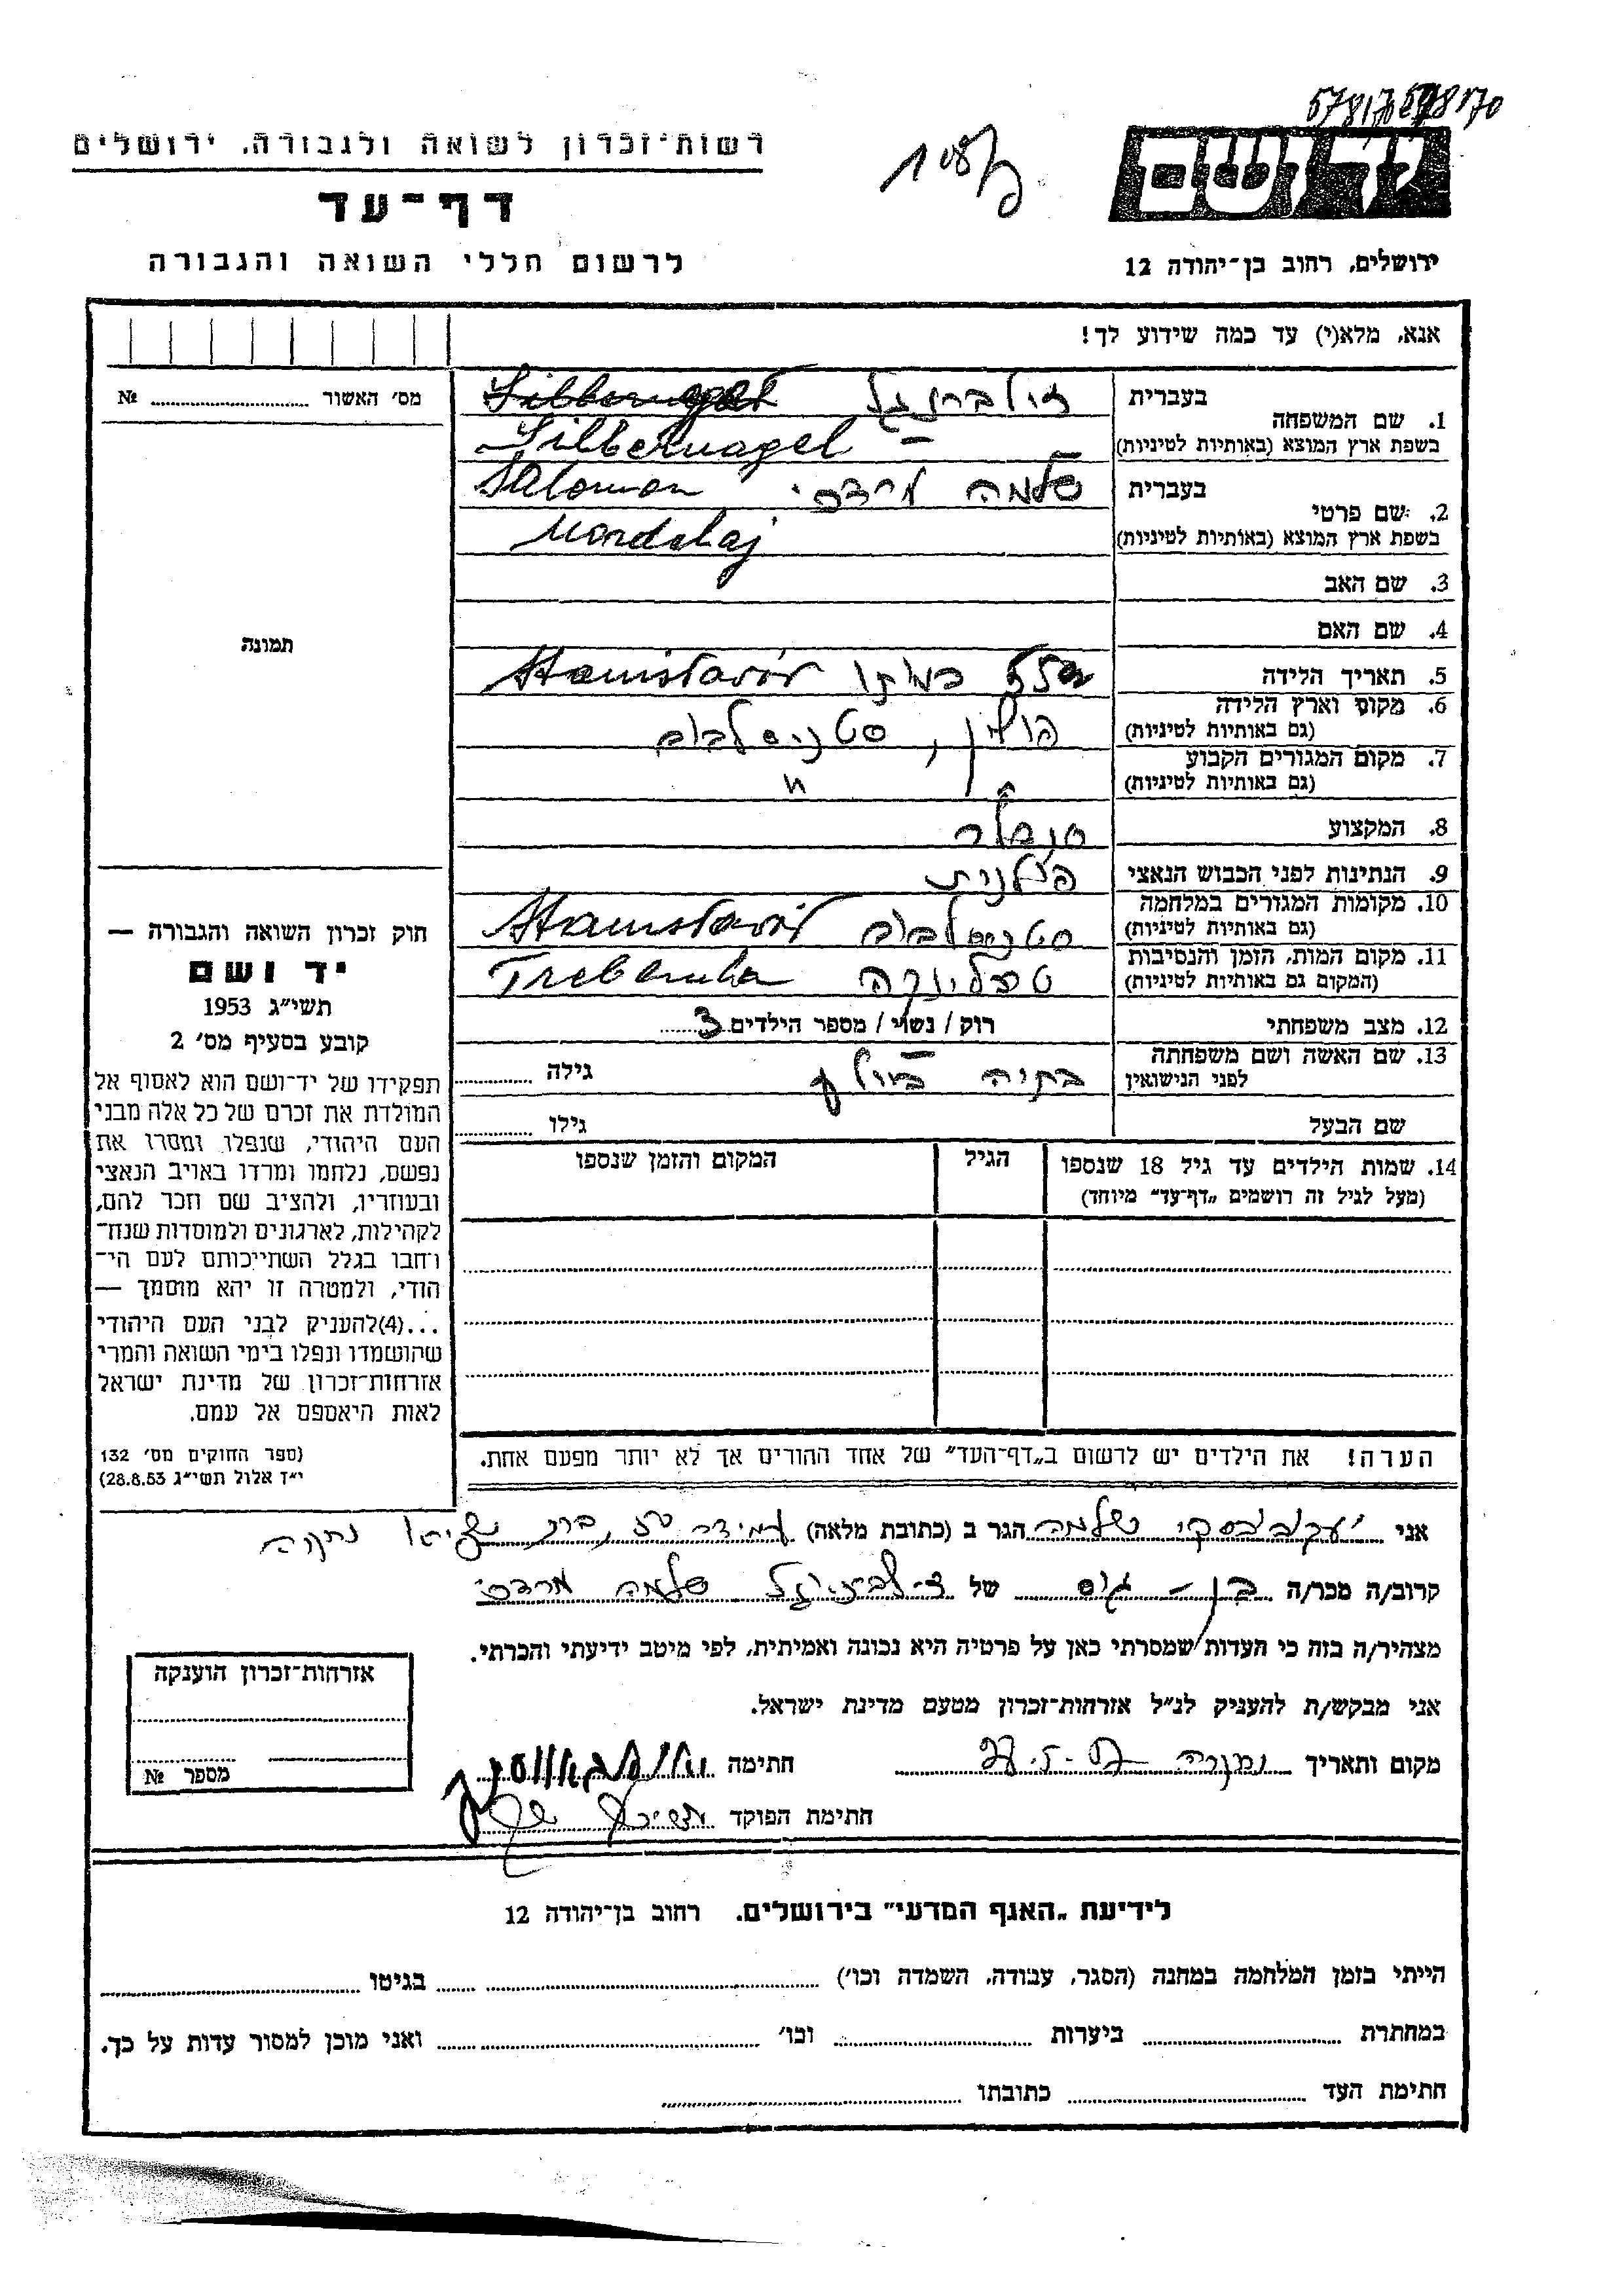 רשות־זכרון לשואה ולגבורה, ירושלים
דף־עד
לרשום חללי השואה והגבורה
יד ושם
ירושלים, רחוב בן־יהודה 12
אנא, מלא(י) עד כמה שידוע לך!
מס' האשור № ........
תמונה
1. שם המשפחה
בעברית זילברנגל
בשפת ארץ המוצא (באותיות לטיניות) Silbernagel
2. שם פרטי
בעברית שלמה מרדכי Salomon
בשפת ארץ המוצא (באותיות לטיניות) Mordchaj
3. שם האב
4. שם האם
5. תאריך הלידה Stanisławów
6. מקום וארץ הלידה
(גם באותיות לטיניות) פולין, סטניסלבוב
7. מקום המגורים הקבוע
(גם באותיות לטיניות) "
8. המקצוע
9. הנתינות לפני הכבוש הנאצי פולנית
10. מקומות המגורים במלחמה
(גם באותיות לטיניות) סטניסלבוב Stanisławów
11. מקום המות, הזמן והנסיבות
(המקום גם באותיות לטיניות) טרבלינקה Treblinka
12. מצב משפחתי רוק / נשוי / מספר הילדים 3
13. שם האשה ושם משפחתה
לפני הנישואין בתיה גילה ........
שם הבעל גילו ........
14. שמות הילדים עד גיל 18 שנספו
(מעל לגיל זה רושמים „דף־עד" מיוחד)
הגיל
המקום והזמן שנספו
הערה! את הילדים יש לרשום ב„דף־העד" של אחד ההורים אך לא יותר מפעם אחת.
חוק זכרון השואה והגבורה —
יד ושם
תשי"ג 1953
קובע בסעיף מס' 2
תפקידו של יד־ושם הוא לאסוף אל
המולדת את זכרם של כל אלה מבני
העם היהודי, שנפלו ומסרו את
נפשם, נלחמו ומרדו באויב הנאצי
ובעוזריו, ולהציב שם וזכר להם,
לקהילות, לארגונים ולמוסדות שנח־
רבו בגלל השתייכותם לעם הי־
הודי, ולמטרה זו יהא מוסמך —
...(4)להעניק לבני העם היהודי
שהושמדו ונפלו בימי השואה והמרי
אזרחות־זכרון של מדינת ישראל
לאות היאספם אל עמם.
(ספר החוקים מס' 132
י"ז אלול תשי"ג 28.8.53)
אני יעקובסקי שלמה הגר ב (כתובת מלאה)
קרוב/ה מכר/ה בן - גיס של זילברנגל שלמה מרדכי
מצהיר/ה בזה כי העדות שמסרתי כאן על פרטיה היא נכונה ואמיתית, לפי מיטב ידיעתי והכרתי.
אני מבקש/ת להעניק לנ"ל אזרחות־זכרון מטעם מדינת ישראל.
מקום ותאריך חתימה
חתימת הפוקד
אזרחות־זכרון הוענקה
מספר №
לידיעת „האגף המדעי" בירושלים, רחוב בן־יהודה 12
הייתי בזמן המלחמה במחנה (הסגר, עבודה, השמדה וכו') ........ בגיטו ........
במחתרת ........ ביערות ........ וכו' ........ ואני מוכן למסור עדות על כך.
חתימת העד ........ כתובתו ........